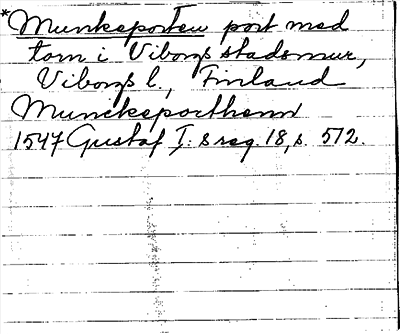 *Munkeporten port med
torn i Viborgs stadsmur,
Viborgs l., Finland
Munckeporthenn
1547 Gustaf I:s reg. 18, s. 572.